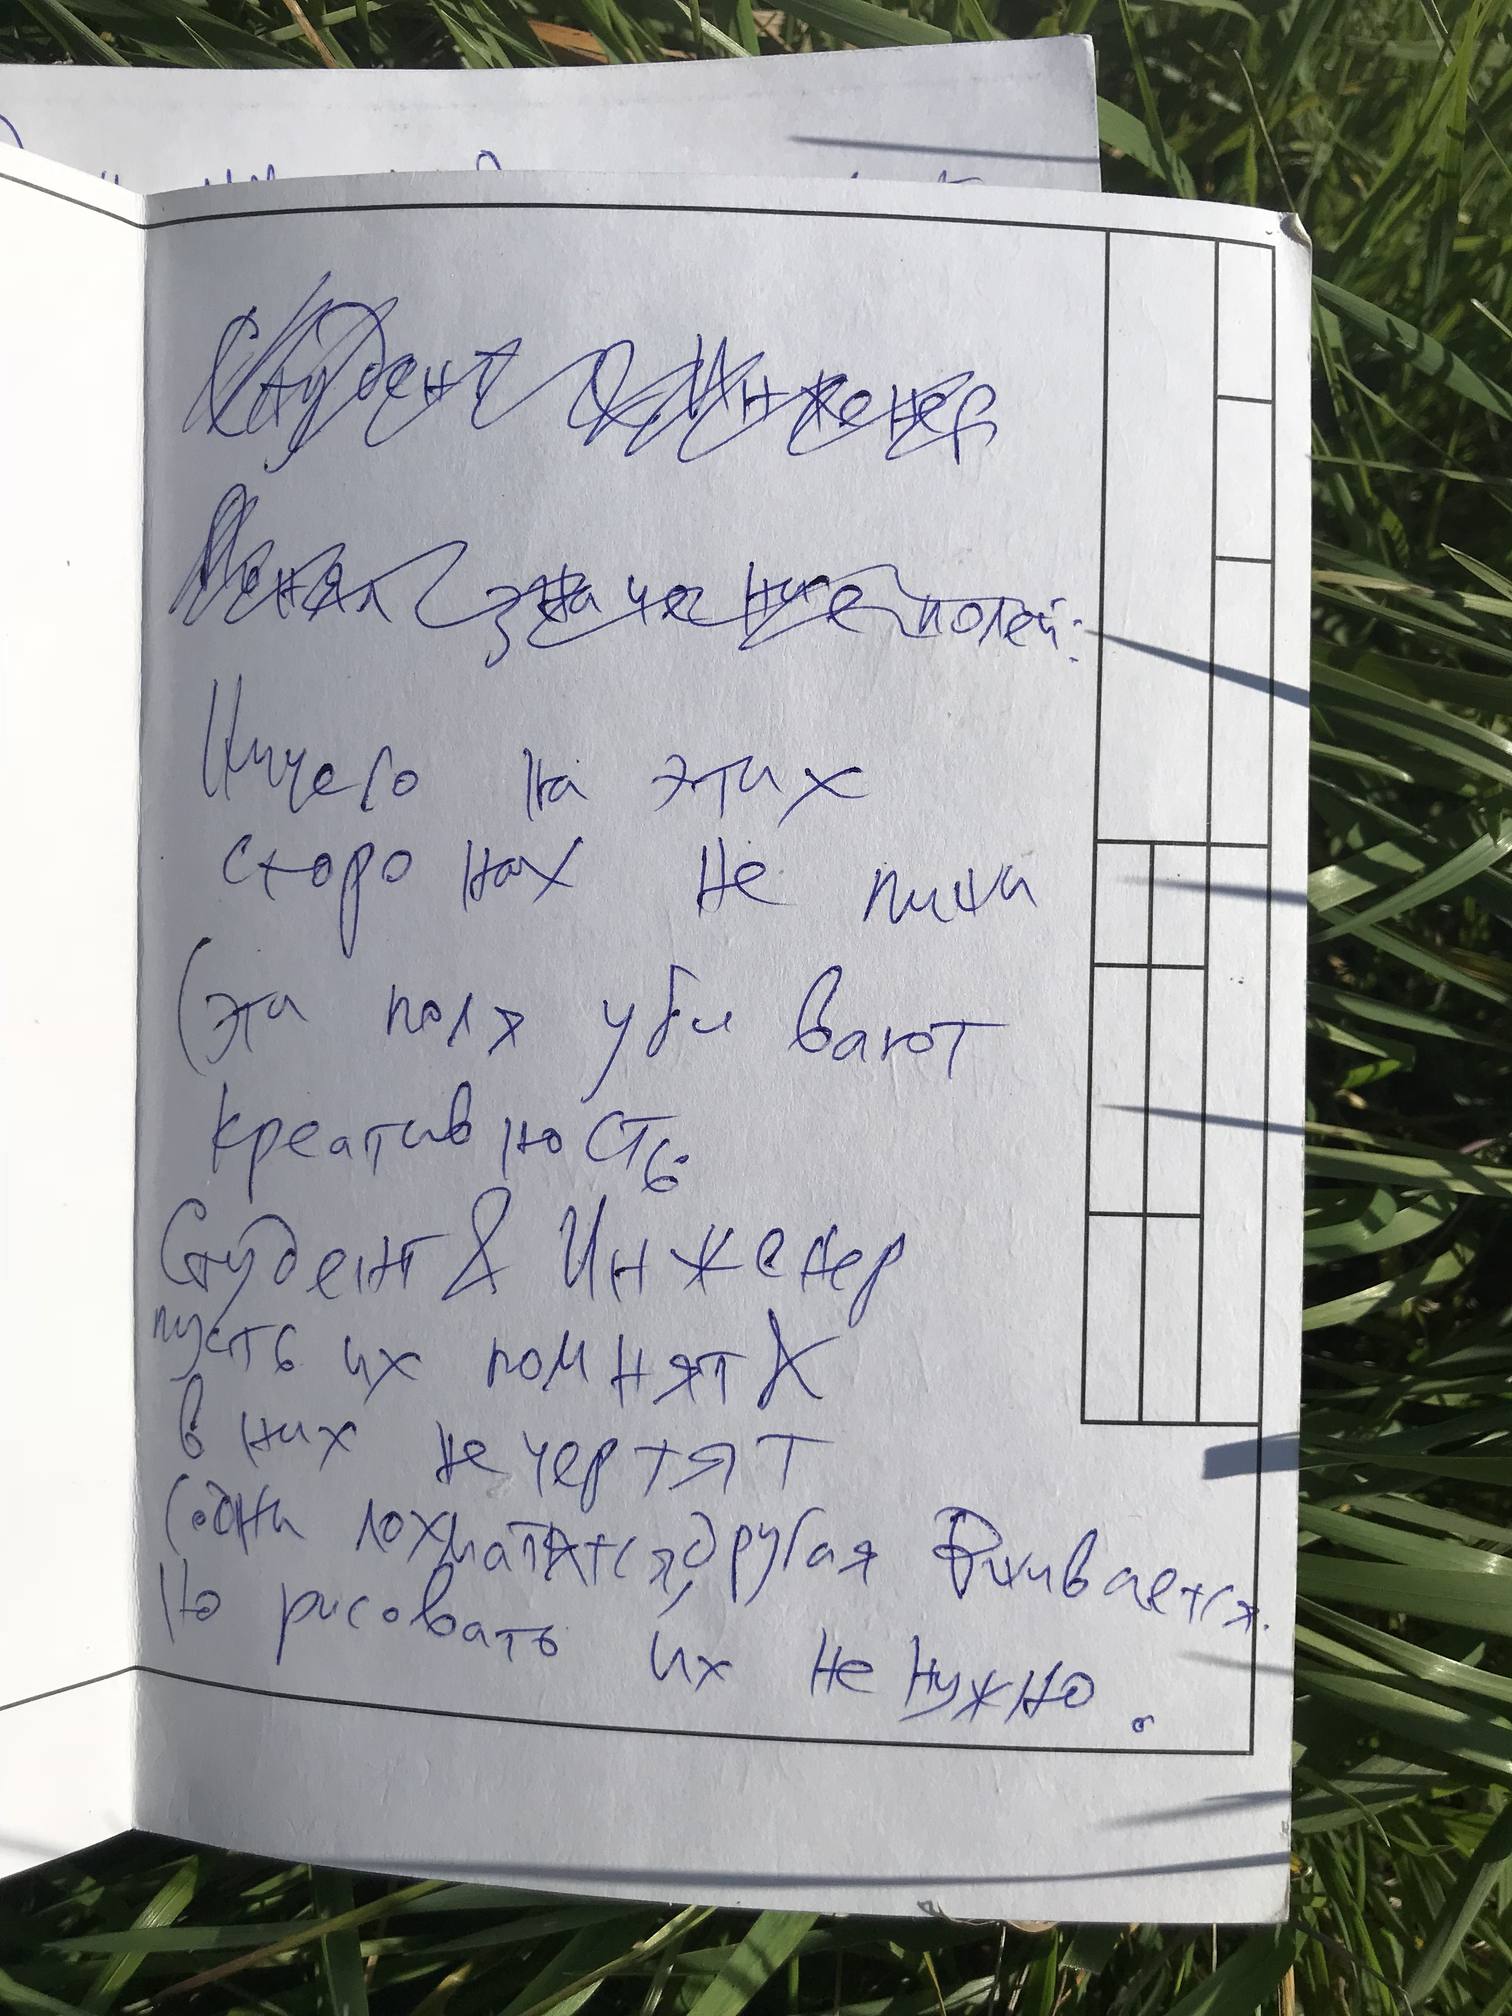 Студент & Инженер
Менял значение полей:
Ничего на этих
сторонах не пиши
(эти поля убивают
креативность.
Студент & Инженер
пусть их помнят &
в них не чертят
(одни лохматятся, другая вживается.
Но рисовать их не нужно.